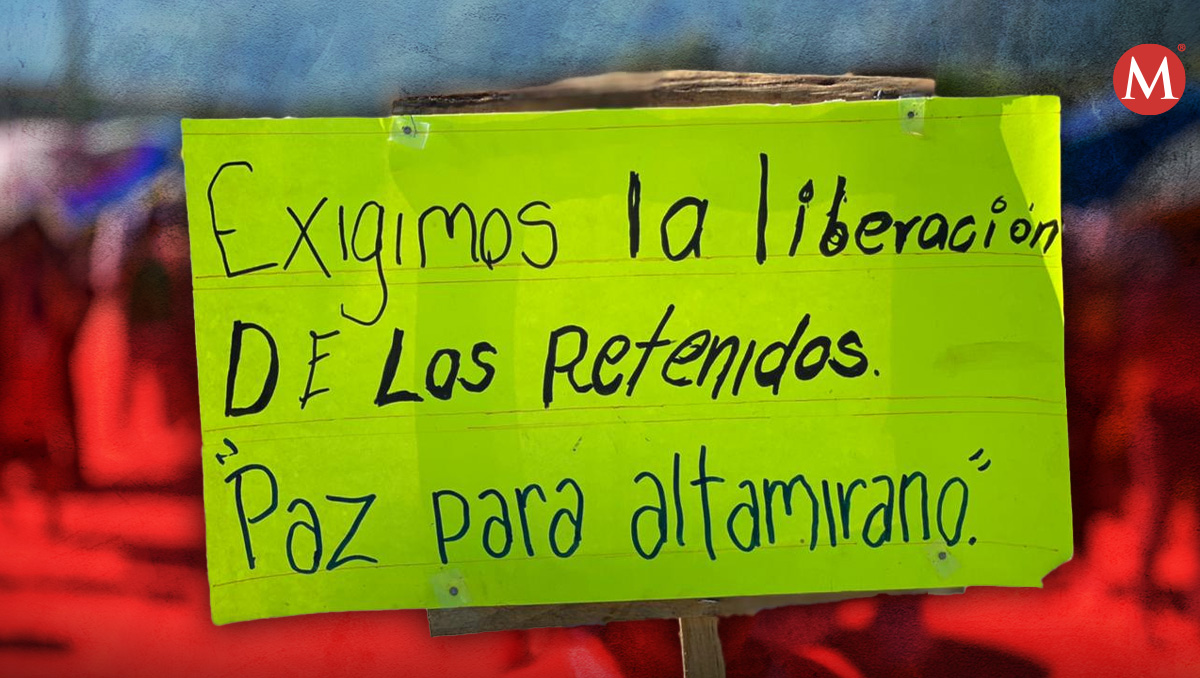 M®
Exigimos la liberación
DE Los Retenidos.
"Paz para altamirano."